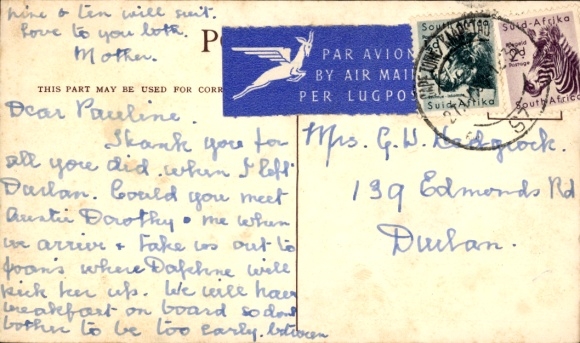 nine & ten will suit.
Love to you both.
Mother.
THIS PART MAY BE USED FOR CORR
Dear Pauline.
Thank you for
all you did when I left
Durban. Could you meet
Auntie Dorothy & me when
we arrive & take us out to
Joan's where Daphne will
pick her up. We will have
breakfast on board so dont
bother to be too early. between
PAR AVION
BY AIR MAIL
PER LUGPOS
South
Suid-Afrika
Suid-Afrika
2d
Postage
South Africa
Mrs. G. W.
139 Edmonds Rd
Durban.